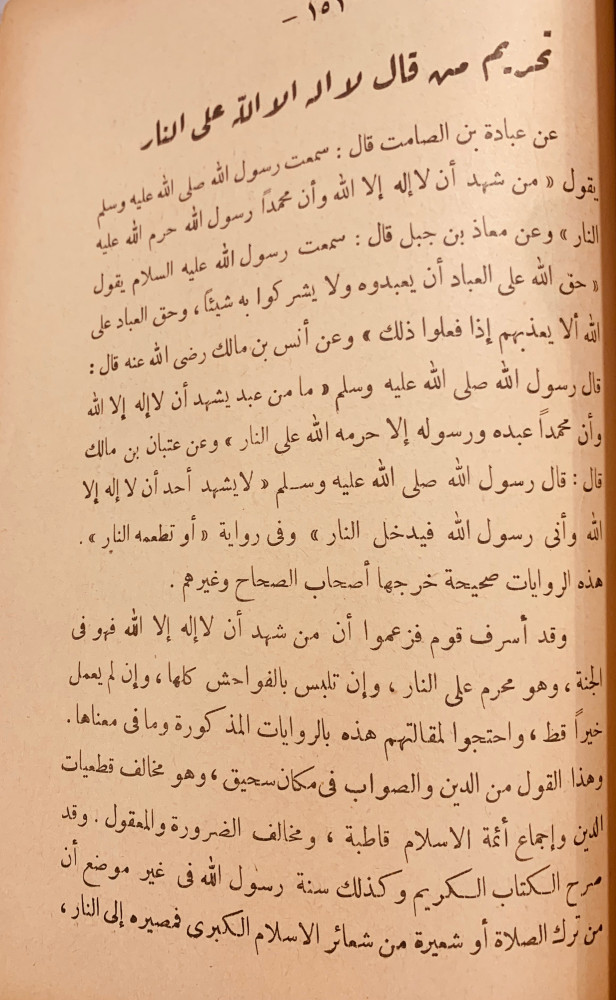 — ١٥١
تحريم من قال لا اله الا الله على النار
عن عبادة بن الصامت قال : سمعت رسول الله صلى الله عليه وسلم
يقول « من شهد أن لا إله إلا الله وأن محمداً رسول الله حرم الله عليه
النار » وعن معاذ بن جبل قال : سمعت رسول الله عليه السلام يقول
« حق الله على العباد أن يعبدوه ولا يشركوا به شيئاً ، وحق العباد على
الله ألا يعذبهم إذا فعلوا ذلك » وعن أنس بن مالك رضى الله عنه قال :
قال رسول الله صلى الله عليه وسلم « ما من عبد يشهد أن لا إله إلا الله
وأن محمداً عبده ورسوله إلا حرمه الله على النار » وعن عتبان بن مالك
قال : قال رسول الله صلى الله عليه وسلم « لا يشهد أحد أن لا إله إلا
الله وأنى رسول الله فيدخل النار » وفى رواية « أو تطعمه النار » .
هذه الروايات صحيحة خرجها أصحاب الصحاح وغيرهم .
وقد أسرف قوم فزعموا أن من شهد أن لا إله إلا الله فهو فى
الجنة ، وهو محرم على النار ، وإن تلبس بالفواحش كلها ، وإن لم يعمل
خيراً قط ، واحتجوا لمقالتهم هذه بالروايات المذكورة وما فى معناها .
وهذا القول من الدين والصواب فى مكان سحيق ، وهو مخالف قطعيات
الدين وإجماع أئمة الاسلام قاطبة ، ومخالف الضرورة والمعقول . وقد
صرح الكتاب الكريم وكذلك سنة رسول الله فى غير موضع أن
من ترك الصلاة أو شعيرة من شعائر الاسلام الكبرى فمصيره إلى النار ،